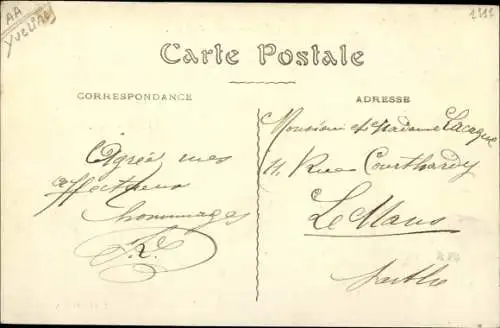 AA
YVELINES
Carte Postale
CORRESPONDANCE
ADRESSE
Agréez mes
affectueux
hommages
Monsieur et Madame Lacaque
11, Rue Courthardy
Le Mans
Sarthe